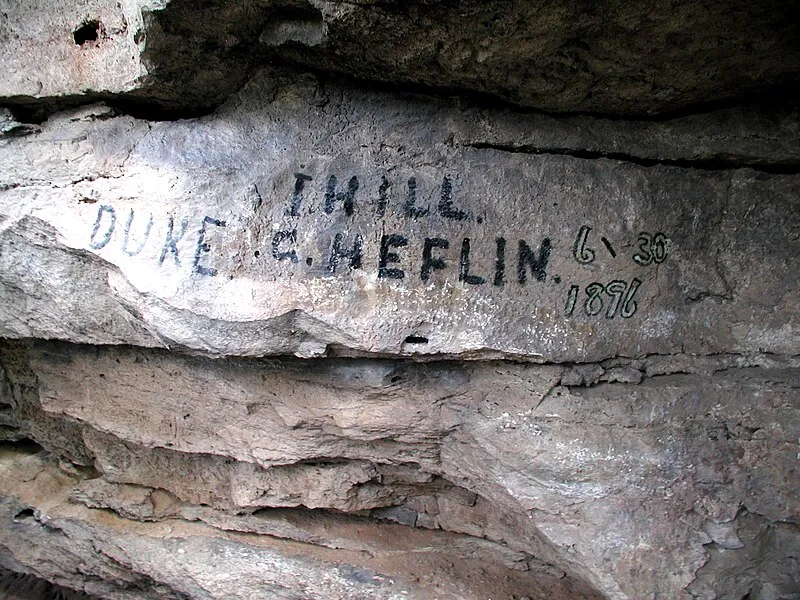 I HILL.
DUKE G. HEFLIN. 6\30
1896